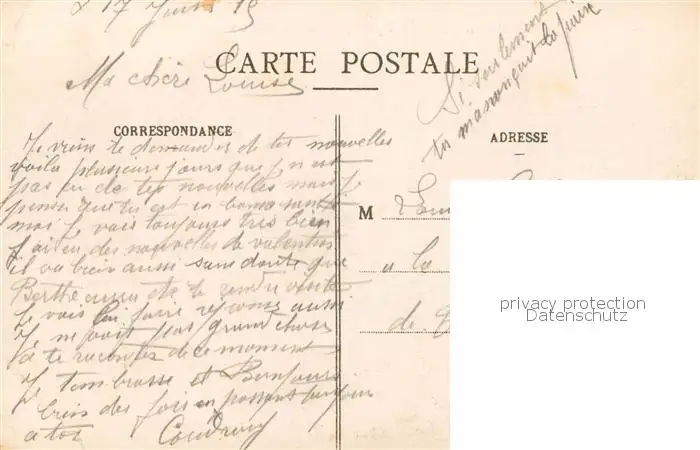 17 Juin 15
CARTE POSTALE
Ma chère Louise
Si seulement
tu
la
CORRESPONDANCE
ADRESSE
Je viens te demander de tes nouvelles
voila plusieurs jours que j n est
pas eu de tes nouvelles mais je
pense que tu est en bonne santé
moi je vais toujours très bien
J ai eu des nouvelles de valentin
il va bien aussi sans doute que
Berthe aura été te rendre visite
Je vais lui faire réponse aussi
Je ne vois pas grand chose
à te raconter de ce moment
Je tembrasse et Bonjour
bien des fois en passant
a toi
M
a la
de
privacy protection
Datenschutz